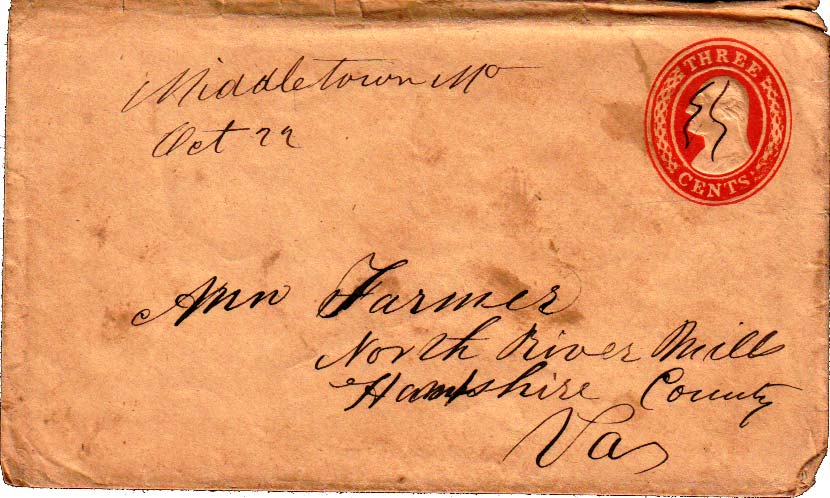 Middletown Mo
Oct 22
THREE
CENTS
Ann Farmer
North River Mills
Hampshire County
Va